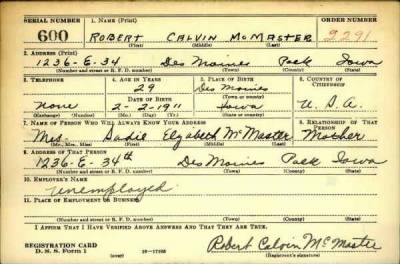 SERIAL NUMBER 1. NAME (Print) ORDER NUMBER
600 ROBERT CALVIN McMASTER 2291
(First) (Middle) (Last)
2. ADDRESS (Print)
1236-E-34 Des Moines Polk Iowa
(Number and street or R. F. D. number) (Town) (County) (State)
3. TELEPHONE 4. AGE IN YEARS 5. PLACE OF BIRTH 6. COUNTRY OF CITIZENSHIP
29 Des Moines
DATE OF BIRTH (Town or county)
none 2-2-1911 Iowa U.S.A.
(Exchange) (Number) (Mo.) (Day) (Yr.) (State or country)
7. NAME OF PERSON WHO WILL ALWAYS KNOW YOUR ADDRESS 8. RELATIONSHIP OF THAT PERSON
Mrs. Sadie Elizabeth McMaster Mother
(Mr., Mrs., Miss) (First) (Middle) (Last)
9. ADDRESS OF THAT PERSON
1236-E-34th Des Moines Polk Iowa
(Number and street or R. F. D. number) (Town) (County) (State)
10. EMPLOYER'S NAME
unemployed
11. PLACE OF EMPLOYMENT OR BUSINESS
(Number and street or R. F. D. number) (Town) (County) (State)
I AFFIRM THAT I HAVE VERIFIED ABOVE ANSWERS AND THAT THEY ARE TRUE.
REGISTRATION CARD
D. S. S. Form 1 Robert Calvin McMaster
(Registrant's signature)